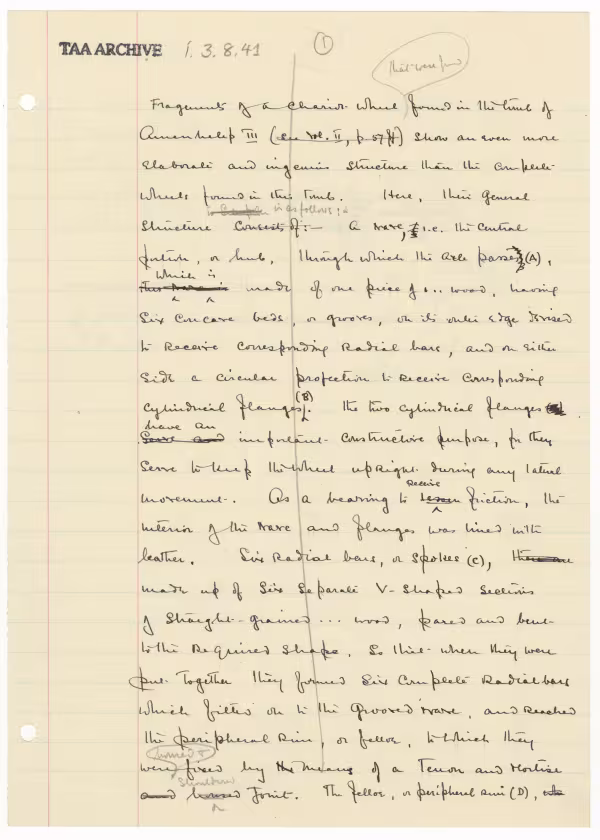 TAA ARCHIVE i. 3. 8. 41
1
that were found
Fragments of a chariot-wheel found in the tomb of
Amenhetep III (see Vol. II, p 57 ff) show an even more
elaborate and ingenious structure than the complete
wheels found in this tomb. Here, their general
is as follows:
structure consists of:- A nave, i.e. the central
portion, or hub, through which the axle passes (A),
which is
this nave is made of one piece of ... wood, having
six concave beds, or grooves, on its outer edge devised
to receive corresponding radial bars, and on either
side a circular projection to receive corresponding
(B)
cylindrical flanges. The two cylindrical flanges
have an
serve and important constructive purpose, for they
serve to keep the wheel upright during any lateral
receive
movement. As a bearing to lessen friction, the
interior of the nave and flanges was lined with
leather. Six radial bars, or spokes (C), there are
made up of six separate V-shaped sections
of straight-grained ... wood, pared and bent
to the required shape. So that when they were
put together they formed six complete radial bars
which fitted on to the grooved nave, and reached
the peripheral rim, or felloe, to which they
were fixed by the means of a Tenon and Mortise
shouldered
and housed joint. The felloe, or peripheral rim (D),